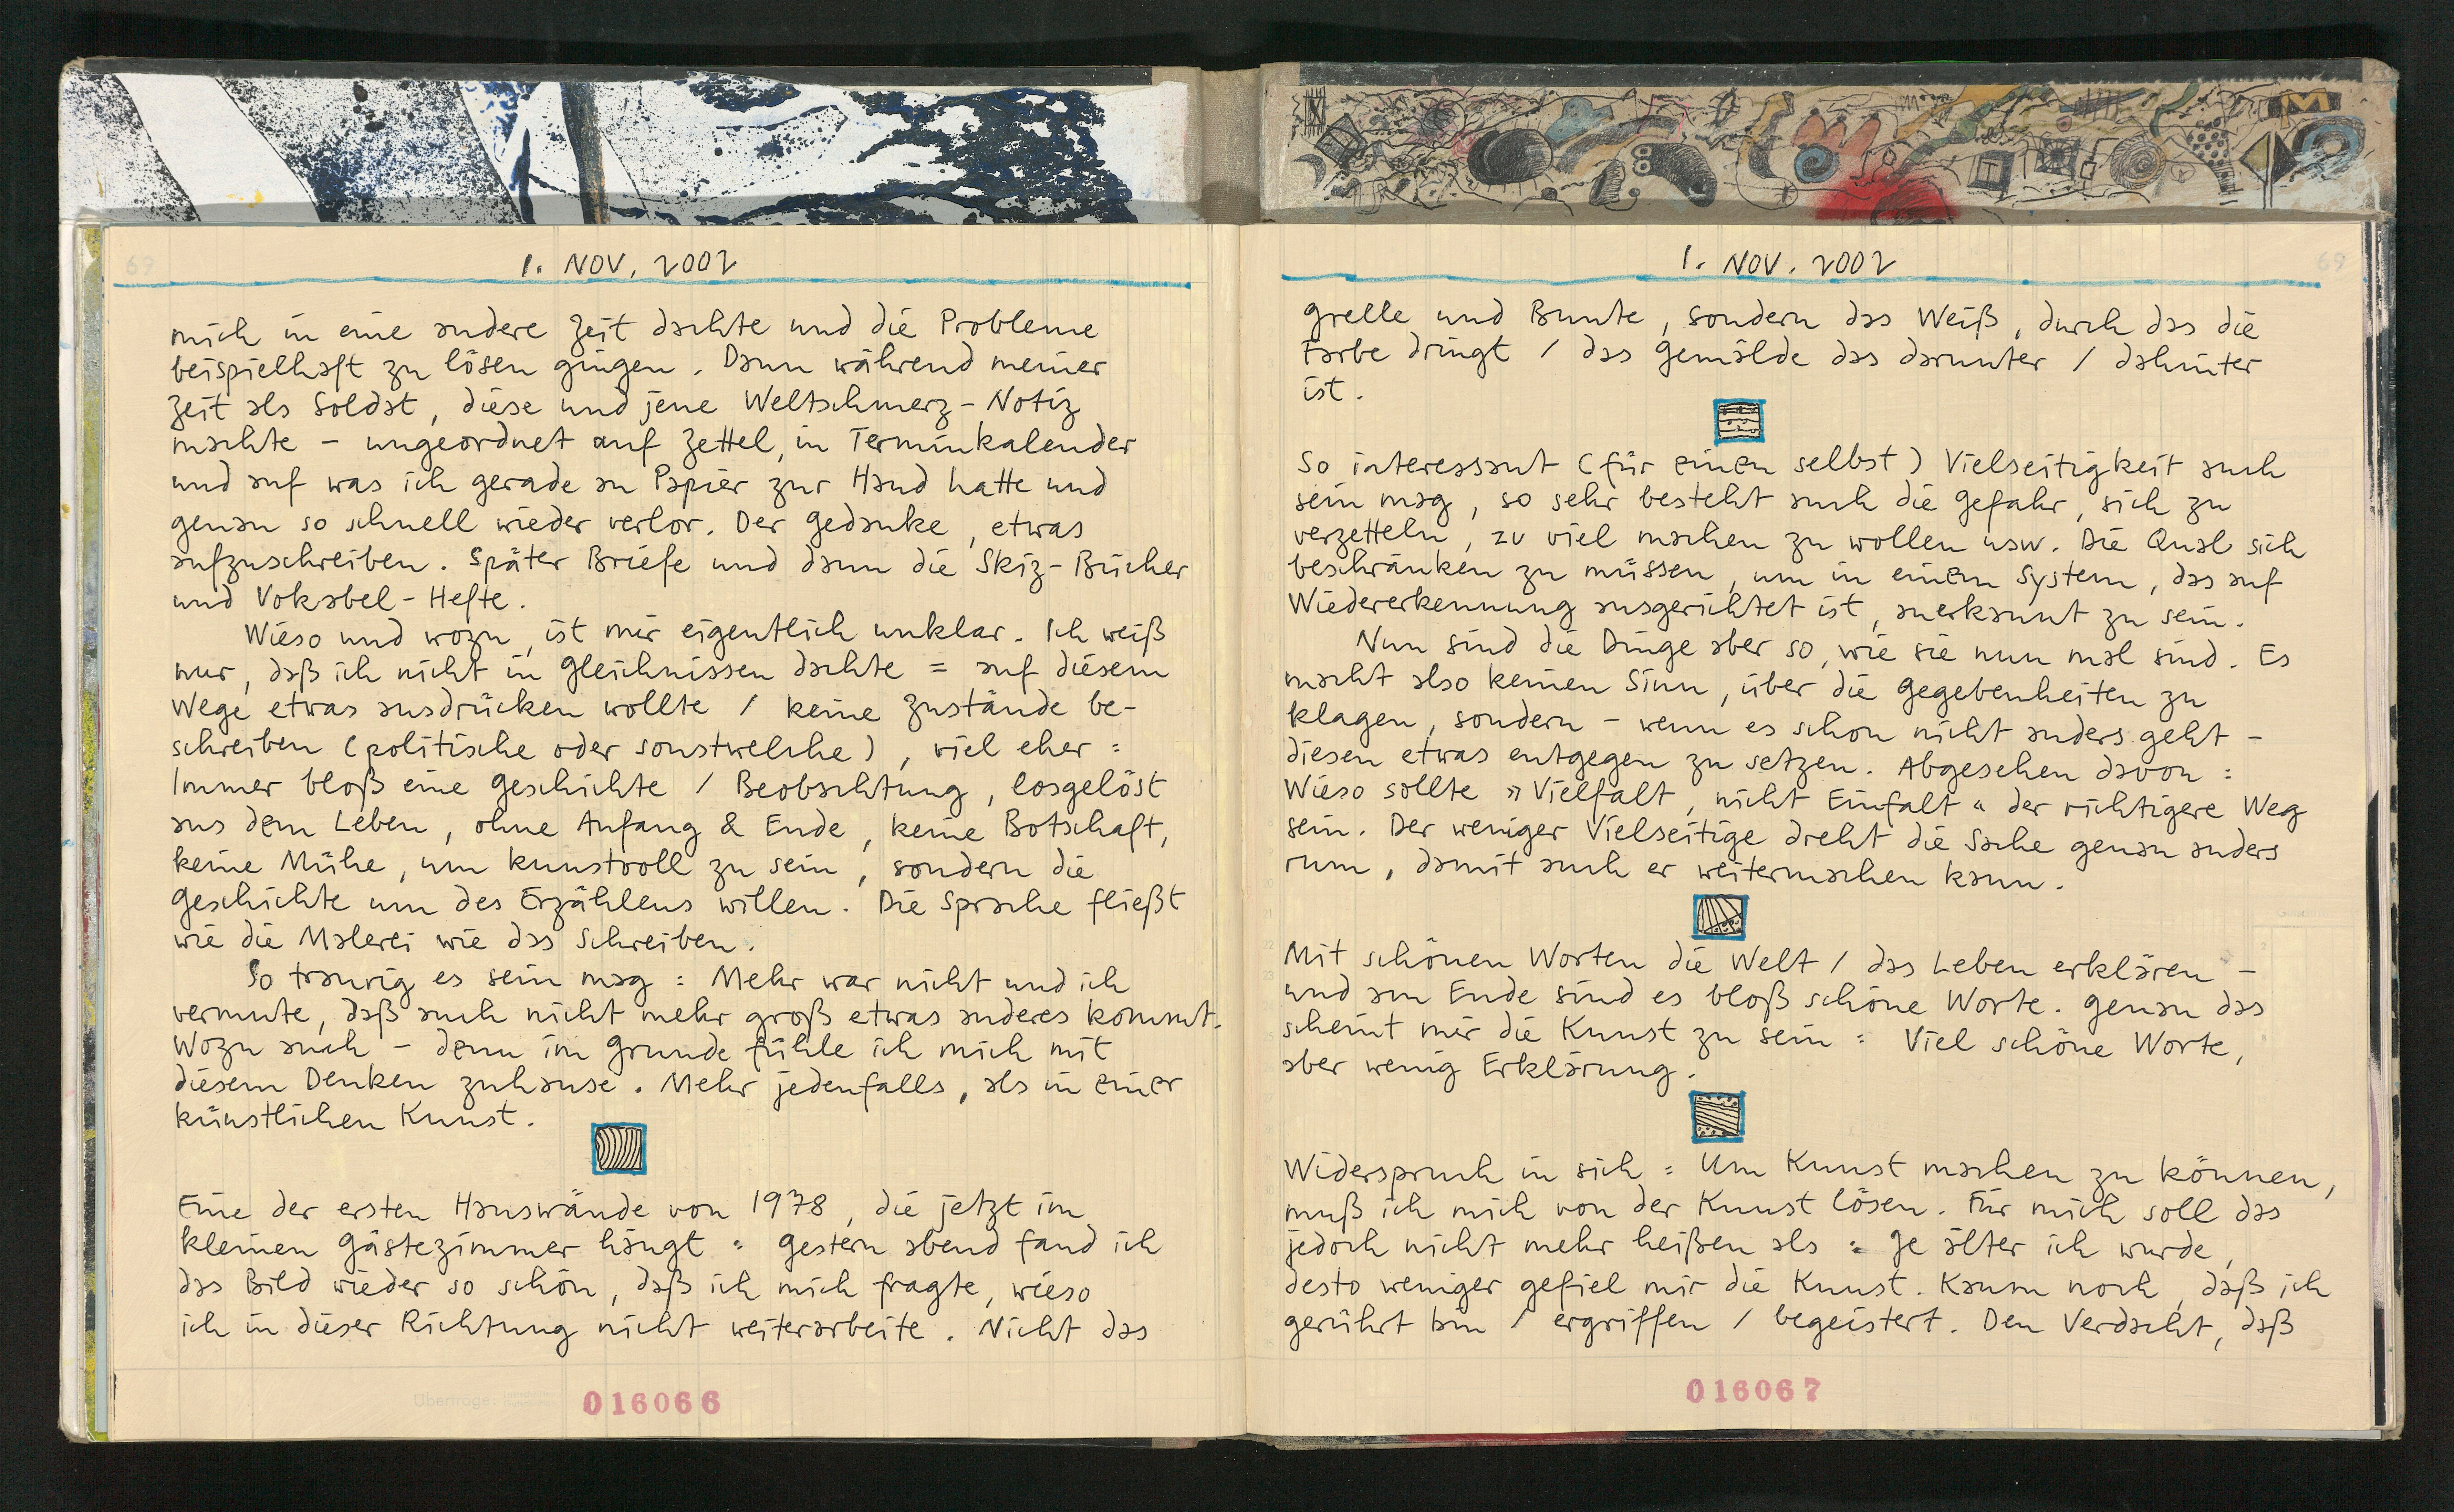 1. NOV. 2002
mich in eine andere Zeit dachte und die Probleme
beispielhaft zu lösen gingen. Dann während meiner
Zeit als Soldat, diese und jene Weltschmerz-Notiz
machte – ungeordnet auf Zettel, in Terminkalender
und auf was ich gerade an Papier zur Hand hatte und
genau so schnell wieder verlor. Der Gedanke, etwas
aufzuschreiben. Später Briefe und dann die Skiz-Bücher
und Vokabel-Hefte.
Wieso und wozu, ist mir eigentlich unklar. Ich weiß
nur, daß ich nicht in Gleichnissen dachte = auf diesem
Wege etwas ausdrücken wollte / keine Zustände be-
schreiben (politische oder sonstwelche), viel eher =
Immer bloß eine Geschichte / Beobachtung, losgelöst
aus dem Leben, ohne Anfang & Ende, keine Botschaft,
keine Mühe, um kunstvoll zu sein, sondern die
Geschichte um des Erzählens willen. Die Sprache fließt
wie die Malerei wie das Schreiben.
So traurig es sein mag = Mehr war nicht und ich
vermute, daß auch nicht mehr groß etwas anderes kommt.
Wozu auch – denn im Grunde fühle ich mich mit
diesem Denken zuhause. Mehr jedenfalls, als in einer
künstlichen Kunst.
Eine der ersten Hauswände von 1978, die jetzt im
kleinen Gästezimmer hängt = Gestern abend fand ich
das Bild wieder so schön, daß ich mich fragte, wieso
ich in dieser Richtung nicht weiterarbeite. Nicht das
Überträge:
016066
1. NOV. 2002
Grelle und Bunte, sondern das Weiß, durch das die
Farbe dringt / das Gemälde das darunter / dahinter
ist.
So interessant (für einen selbst) Vielseitigkeit auch
sein mag, so sehr besteht auch die Gefahr, sich zu
verzetteln, zu viel machen zu wollen usw. Die Qual sich
beschränken zu müssen, um in einem System, das auf
Wiedererkennung ausgerichtet ist, anerkannt zu sein.
Nun sind die Dinge aber so, wie sie nun mal sind. Es
macht also keinen Sinn, über die Gegebenheiten zu
klagen, sondern – wenn es schon nicht anders geht –
diesen etwas entgegen zu setzen. Abgesehen davon =
Wieso sollte »Vielfalt, nicht Einfalt« der richtigere Weg
sein. Der weniger Vielseitige dreht die Sache genau anders
rum, damit auch er weitermachen kann.
Mit schönen Worten die Welt / das Leben erklären –
und am Ende sind es bloß schöne Worte. Genau das
scheint mir die Kunst zu sein = Viel schöne Worte,
aber wenig Erklärung.
Widerspruch in sich = Um Kunst machen zu können,
muß ich mich von der Kunst lösen. Für mich soll das
jedoch nicht mehr heißen als = Je älter ich wurde,
desto weniger gefiel mir die Kunst. Kaum noch, daß ich
gerührt bin / ergriffen / begeistert. Den Verdacht, daß
016067